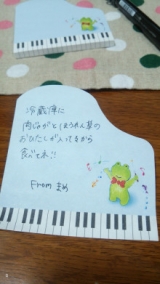 冷蔵庫に
肉じゃがとほうれん草の
おひたしが入ってるから
食べてね!!
From まめ